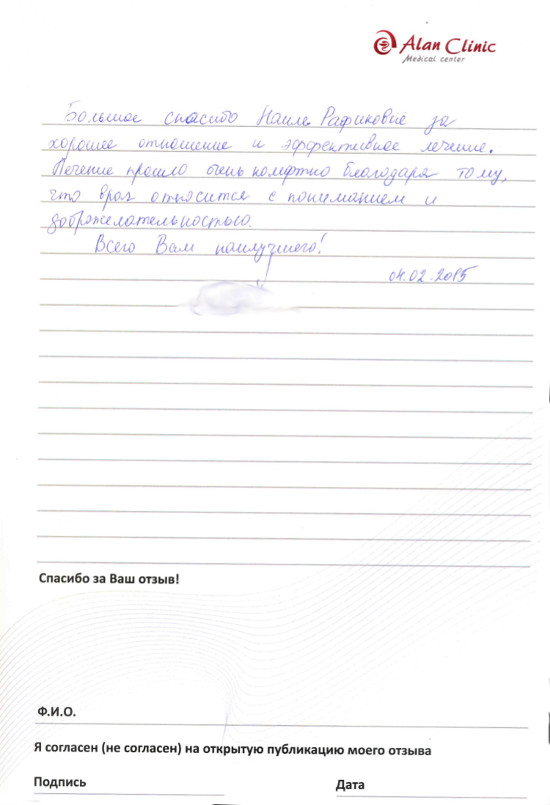 Alan Clinic
Medical center
Большое спасибо Наиле Рафиковне за
хорошее отношение и эффективное лечение.
Лечение прошло очень комфртно благодаря тому,
что врач относится с пониманием и
доброжелательностью.
Всего Вам наилучшего!
04.02.2015
Спасибо за Ваш отзыв!
Ф.И.О.
Я согласен (не согласен) на открытую публикацию моего отзыва
Подпись Дата